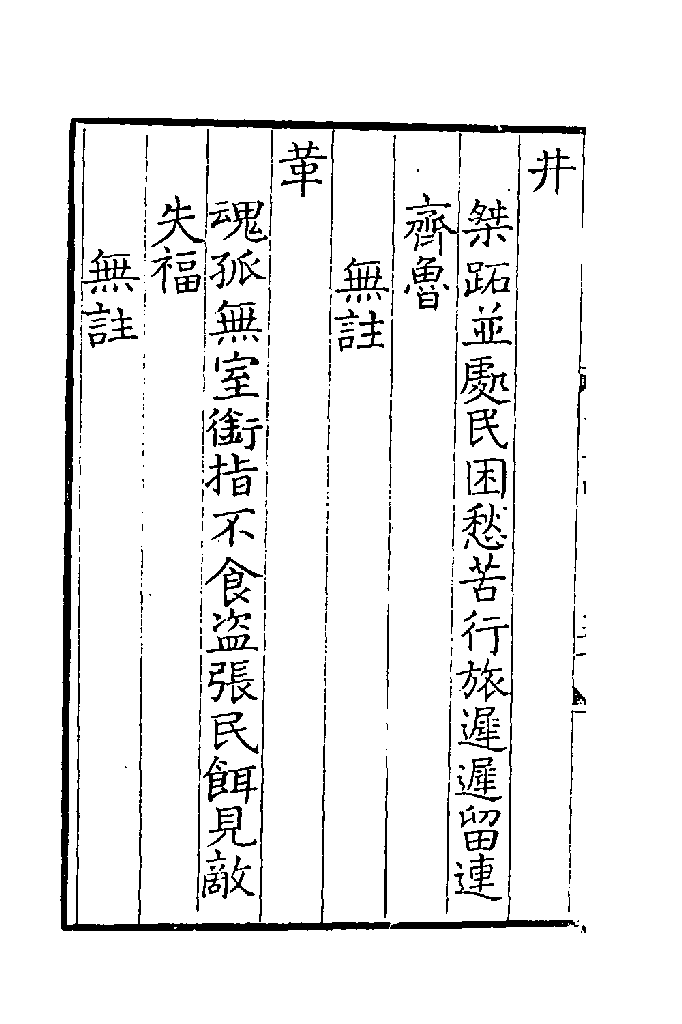 井
桀跖並處民困愁苦行旅遲遲留連
齊魯
無註
革
魂孤無室銜指不食盜張民餌見敵
失福
無註